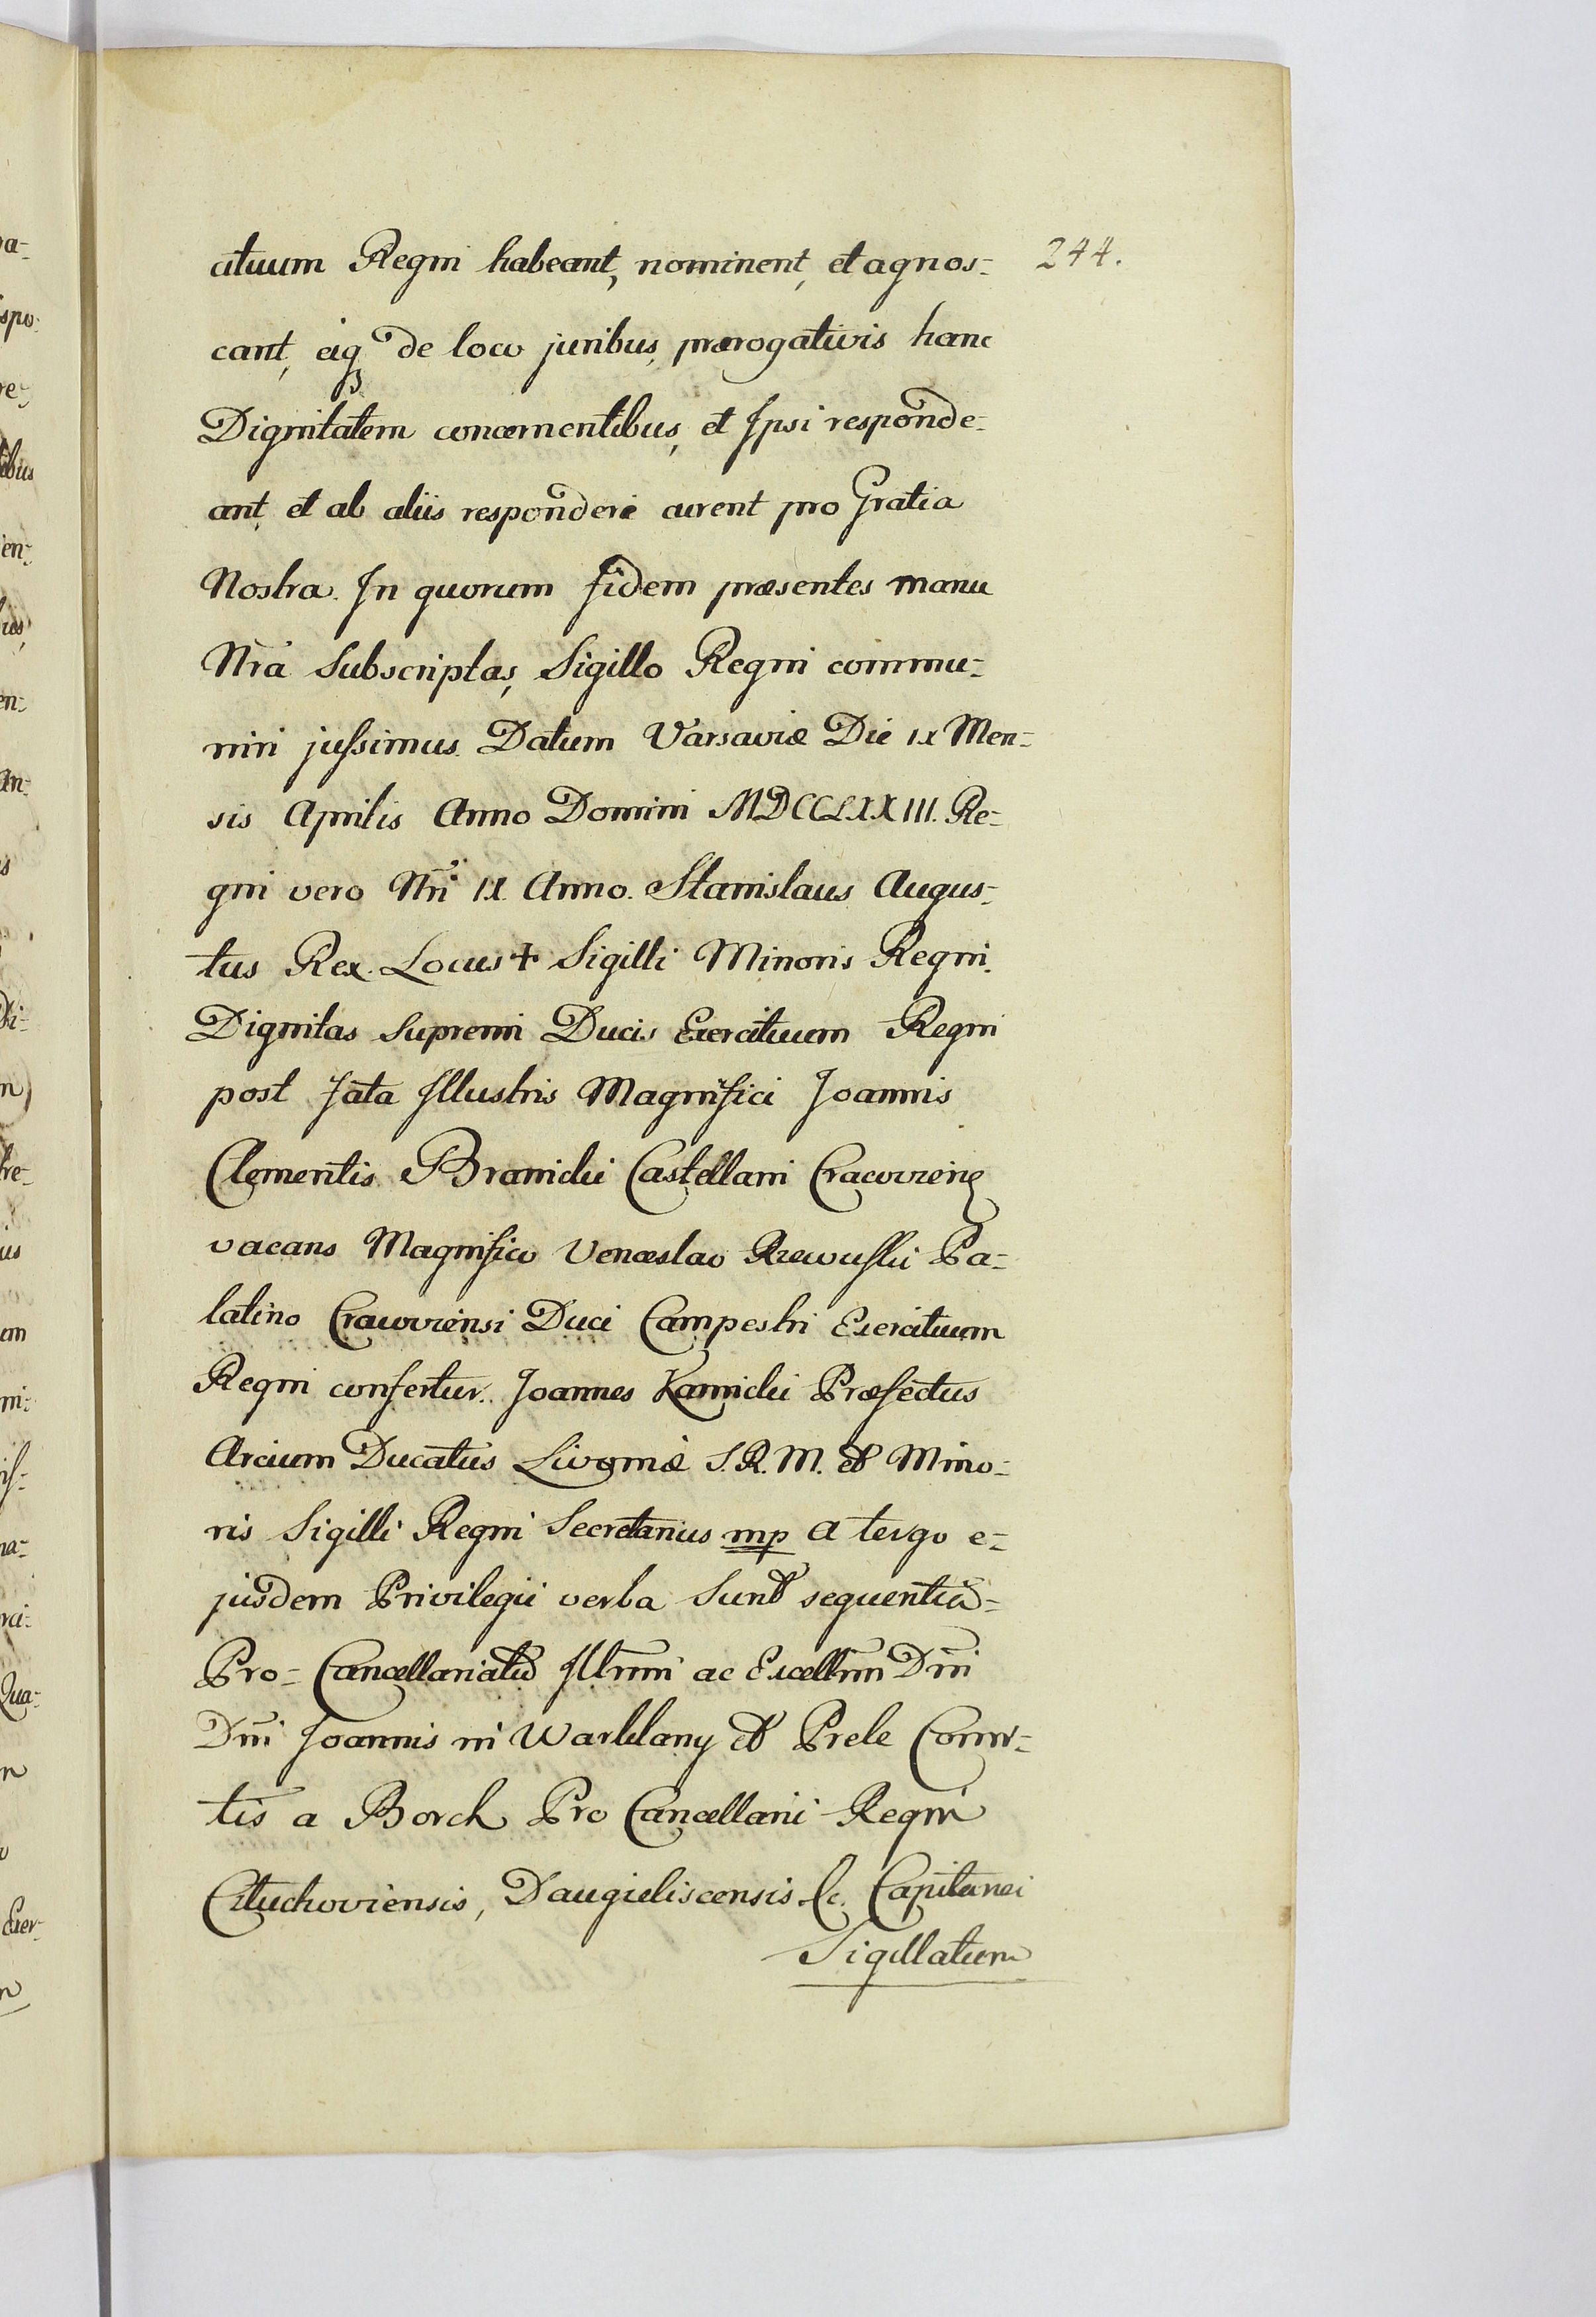 244.
cituum Regni habeant, nominent, et agnos-
cant, eiq3 de loco juribus, prærogativis hanc
Dignitatem concernentibus, et Ipsi responde-
ant, et ab aliis responderi curent pro Gratia
Nostra. In quorum fidem præsentes manu
Nrã Subscriptas, Sigillo Regni commu-
niri jussimus. Datum Varsaviæ Die IX Men-
sis Aprilis Anno Domini MDCCLXXIII. Re-
gni vero Nri IX. Anno. Stanislaus Augus-
tus Rex. Locus + Sigilli Minoris Regni.
Dignitas Supremi Ducis Exercituum Regni
post fata Illustris Magnifici Joannis
Clementis Branicki Castellani Cracovien
vacans Magnifico Venceslao Rzewuski Pa-
latino Cracoviensi Duci Campestri Exercituum
Regni confertur. Joannes Kamicki Præfectus
Arcium Ducatus Livoniæ S.R.M. et Mino-
ris Sigilli Regni Secretarius mp A tergo e-
jusdem Privilegii verba Sunt sequentia=
Pro=Cancellariatu Illrmi ac Excellmi Dni
Dni Joannis in Warklany et Prele Comi-
tis a Borch Pro Cancellarii Regni
Cituchoviensis, Daugieliscensis &c. Capitanei
Sigillatum